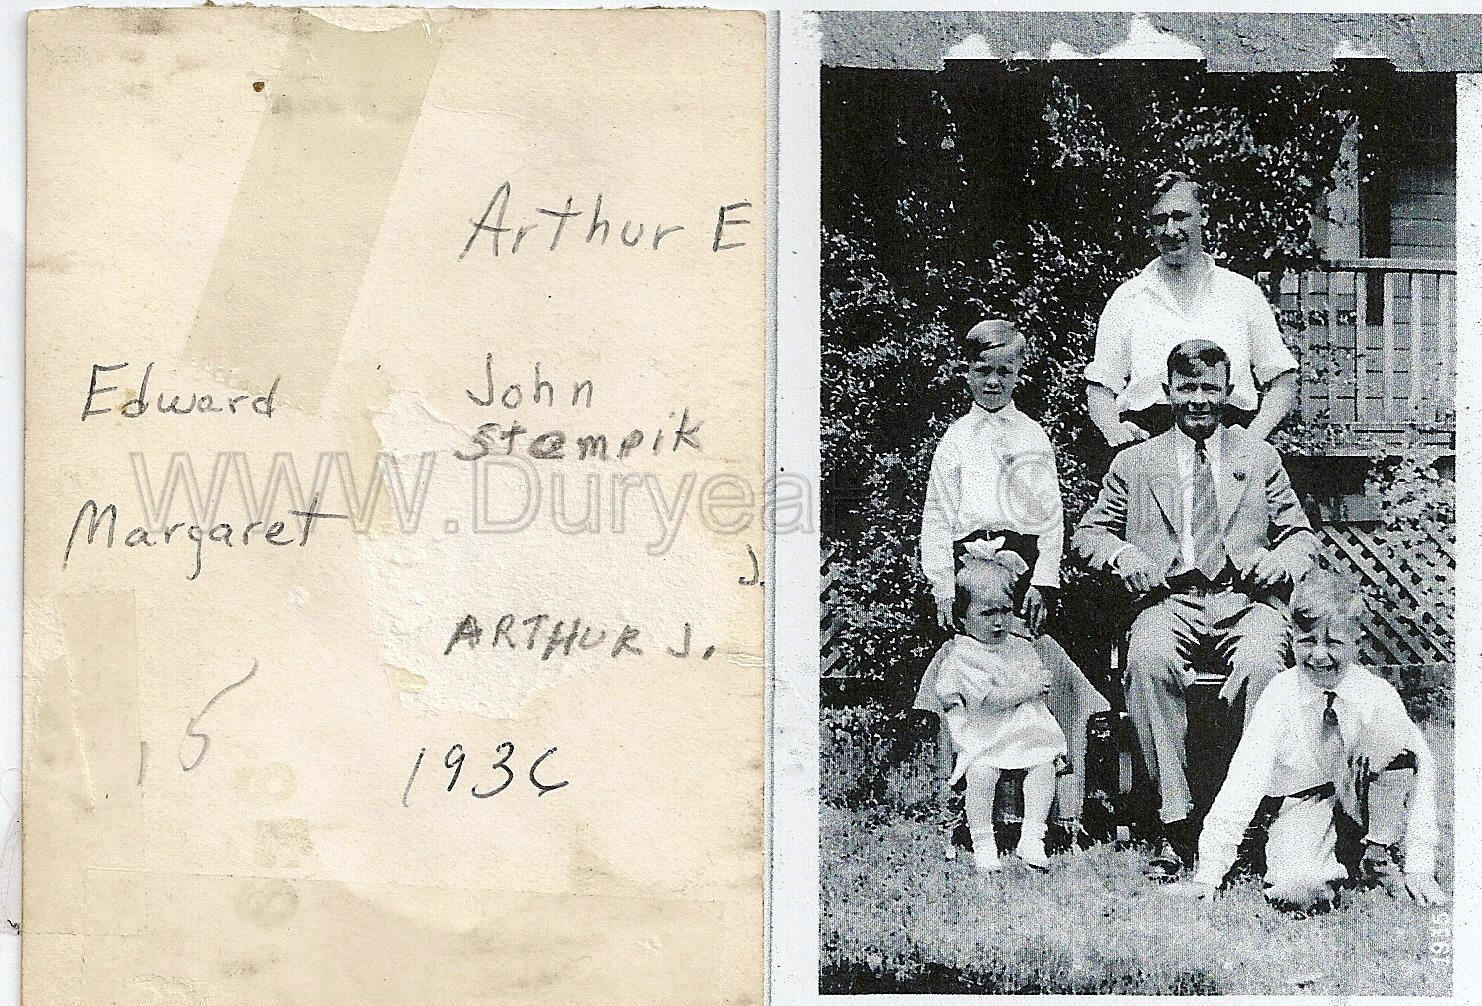 Arthur E
Edward
John
stempik
WWW.DuryeaPA.Com
Margaret
J.
ARTHUR J.
15
1936